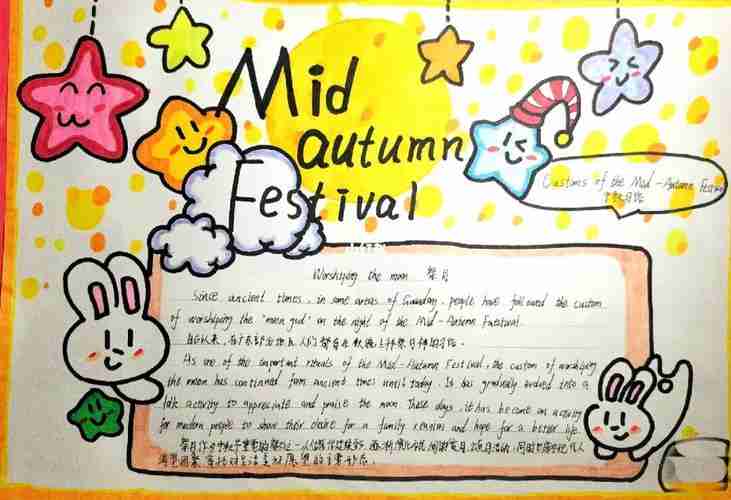 Mid
autumn
Festival
Customs of the Mid-Autumn Festiv
中秋习俗
小红书
Worshiping the moon 祭月
Since ancient times, in some areas of Guandong, people have followed the custom
of worshiping the "moon god" on the night of the Mid-Autumn Festival.
自古以来,在广东部分地区,人们都有在秋晚上拜祭月神的习俗。
As one of the important rituals of the Mid-Autumn Festival, the custom of worshiping
the moon has continued from ancient times until today. It has gradually evolved into a
folk activity to appreciate and praise the moon. These days, it has become an activity
for modern people to show their desire for a family reunion and hope for a better life.
祭月作为中秋节重要的祭礼之一从古代延续至今,逐渐演化为民间的赏月、颂月活动,同时也